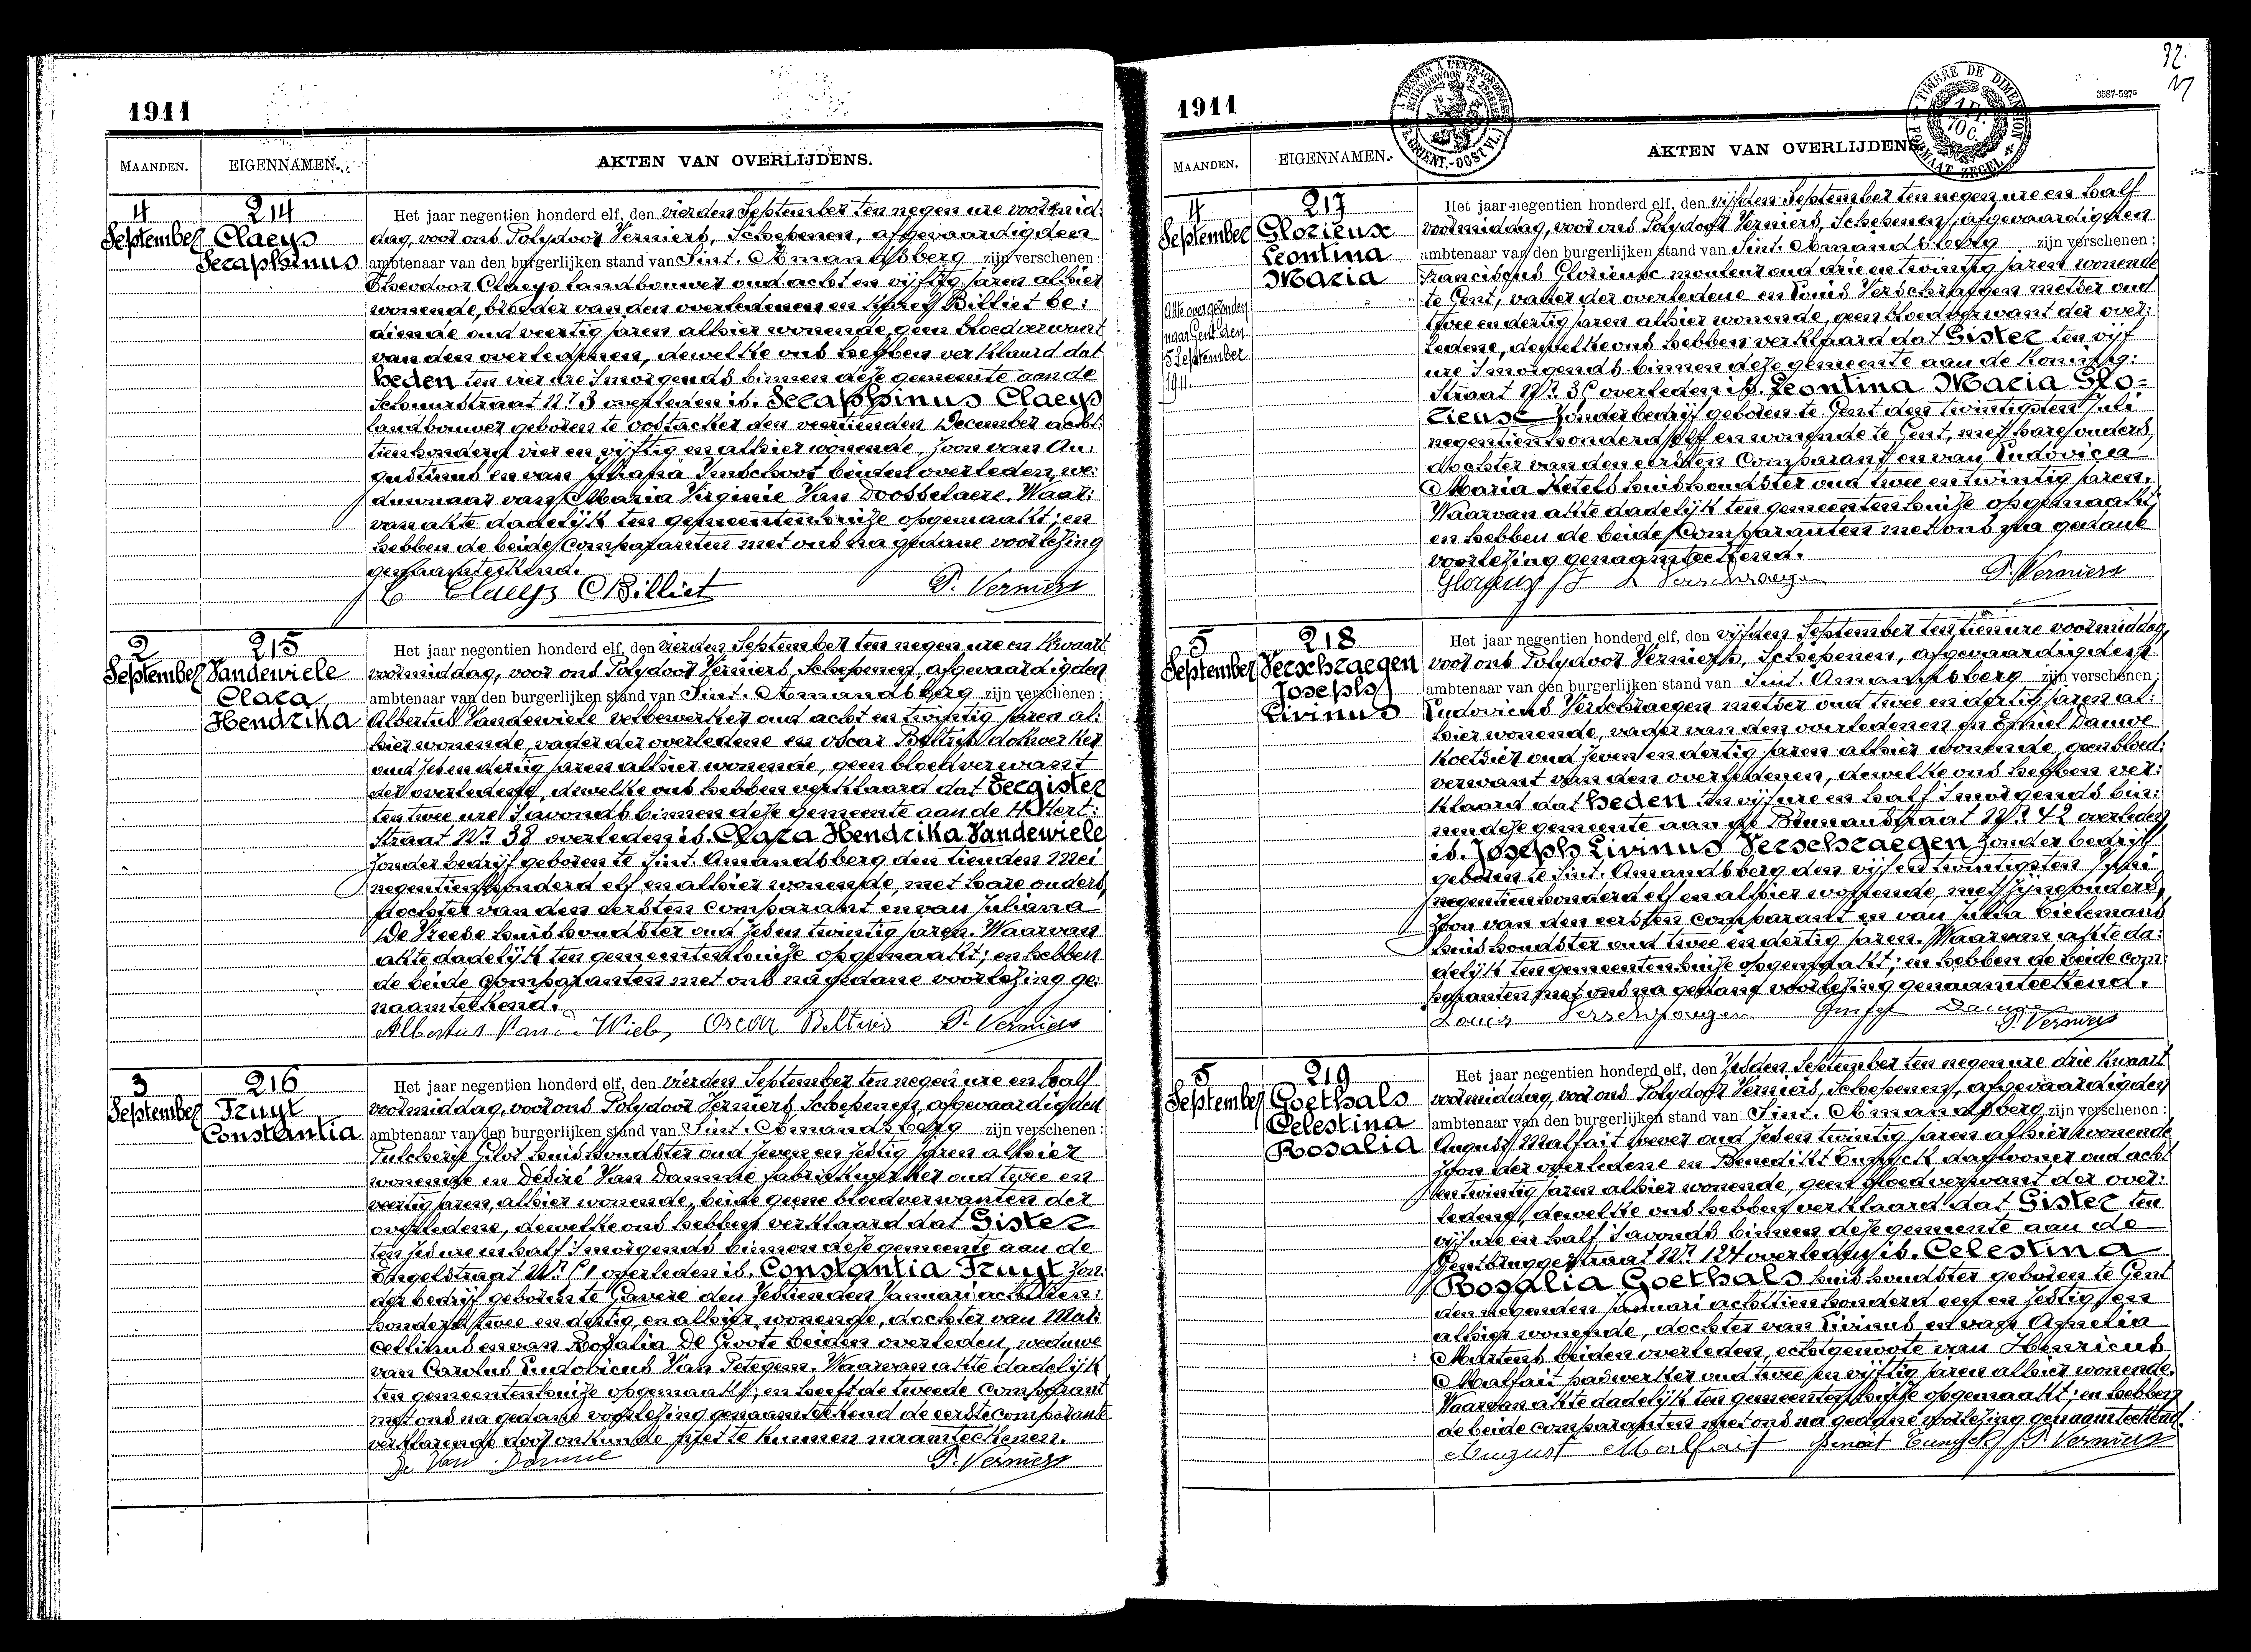 1911
MAANDEN. EIGENNAMEN. AKTEN VAN OVERLIJDENS.
4 September
214
Claeys
Seraphinus
Het jaar negentien honderd elf, den vierden September ten negen ure voormid:
dag, voor ons Polydoor Verniers, Schepenen, afgevaardigden
ambtenaar van den burgerlijken stand van Sint. Amandsberg zijn verschenen:
Theodoor Claeys landbouwer oud acht en vijftig jaren alhier
wonende, broeder van den overledenen en Billiet be:
diende oud veertig jaren alhier wonende, geen bloedverwant
van den overledenen, dewelke ons hebben verklaard dat
heden ten vier ure 's morgends binnen deze gemeente aan de
Schuurstraat Nr. 3 overleden is. Seraphinus Claeys
landbouwer geboren te Oostacker den December acht:
tien honderd vier en vijftig en alhier wonende, zoon van Au:
gustinus en van Inschoot beiden overleden, we:
duwnaar van Maria Virginie Van Doosselaere. Waar:
van akte dadelijk ten gemeentenhuize opgemaakt; en
hebben de beide Comparanten met ons na gedane voorlezing
genaamteekend.
Claeys Billiet P. Verniers
2 September
215
Vandewiele
Clara
Hendrika
Het jaar negentien honderd elf, den vierden September ten negen ure en kwaart
voormiddag, voor ons Polydoor Verniers, Schepenen, afgevaardigden
ambtenaar van den burgerlijken stand van Sint. Amandsberg zijn verschenen:
Albertus Vandewiele oud acht en twintig jaren al:
hier wonende, vader der overledene en Oscar Beltijs dokwerker
oud zes en dertig jaren alhier wonende, geen bloedverwant
der overledene, dewelke ons hebben verklaard dat eergister
ten twee ure 's avonds binnen deze gemeente aan de Hert:
straat Nr. 38 overleden is. Clara Hendrika Vandewiele
zonder bedrijf geboren te Sint. Amandsberg den tienden Mei
negentien honderd elf en alhier wonende, met hare ouders,
dochter van den eersten Comparant en van Juliana
De Reede huishoudster oud zes en twintig jaren. Waarvan
akte dadelijk ten gemeentenhuize opgemaakt; en hebben
de beide Comparanten met ons na gedane voorlezing ge:
naamteekend.
Albertus Van de Wiele Oscar Beltijs P. Verniers
3 September
216
Fruyt
Constantia
Het jaar negentien honderd elf, den vierden September ten negen ure en half
voormiddag, voor ons Polydoor Verniers, Schepenen, afgevaardigden
ambtenaar van den burgerlijken stand van Sint. Amandsberg zijn verschenen:
Pulcherie Gilot huishoudster oud zeven en zestig jaren alhier
wonende en Désiré Van Damme fabriekwerker oud twee en
veertig jaren, alhier wonende, beide geene bloedverwanten der
overledene, dewelke ons hebben verklaard dat Gister
ten zes ure en half 's morgends binnen deze gemeente aan de
Engelstraat Nr. overleden is. Constantia Fruyt zon:
der bedrijf geboren te Gavere den zestienden Januari achttien:
honderd twee en dertig, en alhier wonende, dochter van Mar:
cellinus en van Rosalia De Groote beiden overleden, weduwe
van Carolus Ludovicus Van Petegem. Waarvan akte dadelijk
ten gemeentenhuize opgemaakt; en heeft de tweede Comparant
met ons na gedane voorlezing genaamteekend de eerste Comparante
verklarende door onkunde niet te kunnen naamteekenen.
De Van Damme P. Verniers
1911
3587-5275
MAANDEN. EIGENNAMEN. AKTEN VAN OVERLIJDENS
4 September
217
Glorieuse
Leontina
Maria
Akte overgezonden
naar Gent den
5 September
1911.
Het jaar negentien honderd elf, den vijfden September ten negen ure en half
voormiddag, voor ons Polydoor Verniers, Schepenen, afgevaardigden
ambtenaar van den burgerlijken stand van Sint. Amandsberg zijn verschenen:
Franciscus Glorieuse monteur oud drie en twintig jaren wonende
te Gent, vader der overledene en Louis Verschraegen metser oud
twee en dertig jaren alhier wonende, geen bloedverwant der over:
ledene, dewelke ons hebben verklaard dat Gister ten vijf
ure 's morgends binnen deze gemeente aan de Koning:
straat Nr. overleden is. Leontina Maria Glo=
rieuse zonder bedrijf geboren te Gent den twintigsten Juli
negentien honderd elf en wonende te Gent, met hare ouders,
dochter van den eersten Comparant en van Ludovica
Maria Ketels huishoudster oud twee en twintig jaren.
Waarvan akte dadelijk ten gemeentenhuize opgemaakt;
en hebben de beide Comparanten met ons na gedane
voorlezing genaamteekend.
P. Verniers
5 September
218
Verschraegen
Joseph
Livinus
Het jaar negentien honderd elf, den vijfden September ten tien ure voormiddag,
voor ons Polydoor Verniers, Schepenen, afgevaardigden
ambtenaar van den burgerlijken stand van Sint. Amandsberg zijn verschenen:
Ludovicus Verschraegen metser oud twee en dertig jaren al:
hier wonende, vader van den overledenen en Gustaf Dauwe
koetsier oud zeven en dertig jaren alhier wonende, geen bloed:
verwant van den overledenen, dewelke ons hebben ver:
klaard dat heden ten vijf ure en half 's morgends bin:
nen deze gemeente aan de straat Nr. 42 overleden
is. Joseph Livinus Verschraegen zonder bedrijf
geboren te Sint. Amandsberg den vijf en twintigsten
negentien honderd elf en alhier wonende, met zijne ouders,
zoon van den eersten comparant en van Julia Tielemans
huishoudster oud twee en dertig jaren. Waarvan akte da:
delijk ten gemeentenhuize opgemaakt; en hebben de beide com:
paranten met ons na gedane voorlezing genaamteekend.
Louis Verschraegen Dauwe
P. Verniers
5 September
219
Goethals
Celestina
Rosalia
Het jaar negentien honderd elf, den zesden September ten negen ure drie kwaart
voormiddag, voor ons Polydoor Verniers, Schepenen, afgevaardigden
ambtenaar van den burgerlijken stand van Sint. Amandsberg zijn verschenen:
August Malfait wever oud zes en twintig jaren alhier wonende
zoon der overledene en Benedikt daglooner oud acht
en twintig jaren alhier wonende, geen bloedverwant der over:
ledene, dewelke ons hebben verklaard dat Gister ten
vijf ure en half 's avonds binnen deze gemeente aan de
Gentbruggestraat Nr. 124 overleden is. Celestina
Rosalia Goethals huishoudster geboren te Gent
den negenden Januari achttien honderd een en zestig en
alhier wonende, dochter van Livinus en van Amelia
Martens beiden overleden, echtgenoote van Henricus
Malfait oud twee en vijftig jaren alhier wonende.
Waarvan akte dadelijk ten gemeentenhuize opgemaakt; en hebben
de beide comparanten met ons na gedane voorlezing genaamteekend.
August Malfait P. Verniers